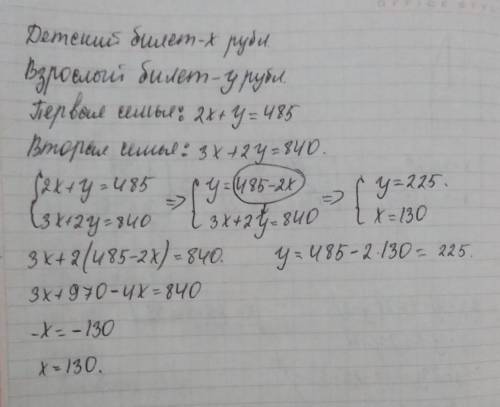 Детский билет - x рубл.
Взрослый билет - y рубл.
Первая семья: 2x + y = 485
Вторая семья: 3x + 2y = 840.
{2x + y = 485 => {y = 485 - 2x => {y = 225.
3x + 2y = 840 3x + 2y = 840 x = 130
3x + 2(485 - 2x) = 840. y = 485 - 2·130 = 225.
3x + 970 - 4x = 840
-x = -130
x = 130.